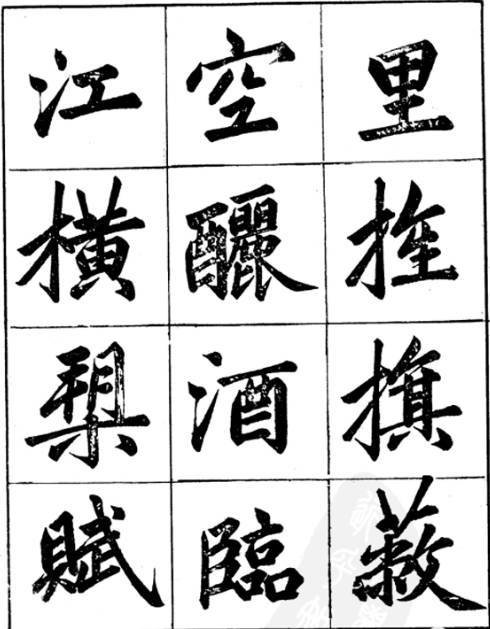 里旌旗蔽
空釃酒臨
江橫槊賦